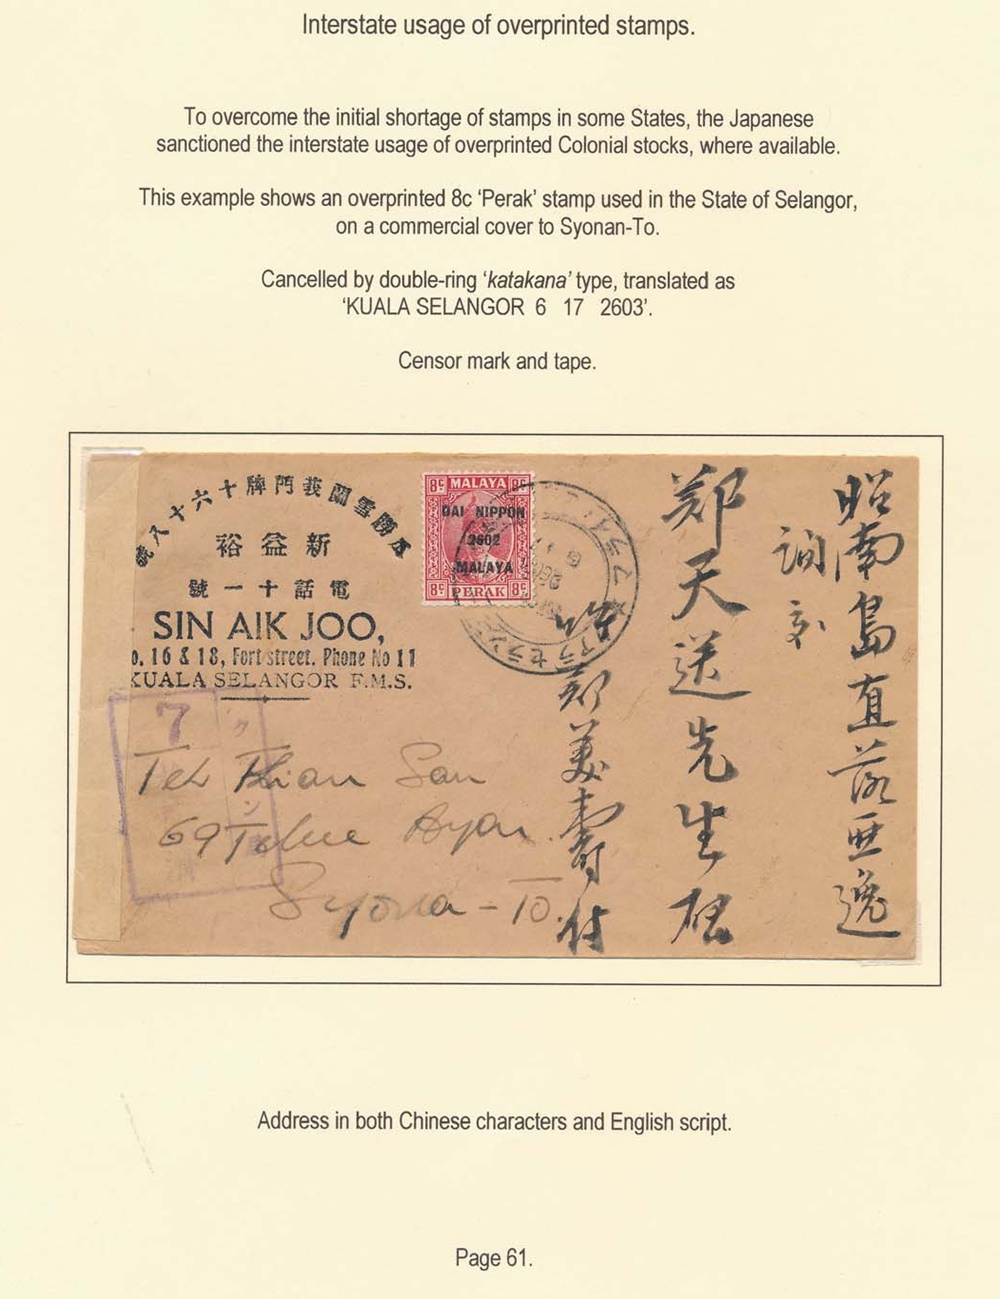 Interstate usage of overprinted stamps.
To overcome the initial shortage of stamps in some States, the Japanese
sanctioned the interstate usage of overprinted Colonial stocks, where available.
This example shows an overprinted 8c ‘Perak’ stamp used in the State of Selangor,
on a commercial cover to Syonan-To.
Cancelled by double-ring ‘katakana’ type, translated as
‘KUALA SELANGOR 6 17 2603’.
Censor mark and tape.
瓜勝雪蘭莪門牌十六十八號
新益裕
電話十一號
SIN AIK JOO,
o. 16 & 18, Fort street. Phone No 11
KUALA SELANGOR F.M.S.
8c MALAYA 8c
DAI NIPPON
2602
MALAYA
8c PERAK 8c
昭南島直落亜逸
鄭天送先生
鄭美壽付
7
Teh Thian San
69 Telue Ayar
Syona-To.
Address in both Chinese characters and English script.
Page 61.